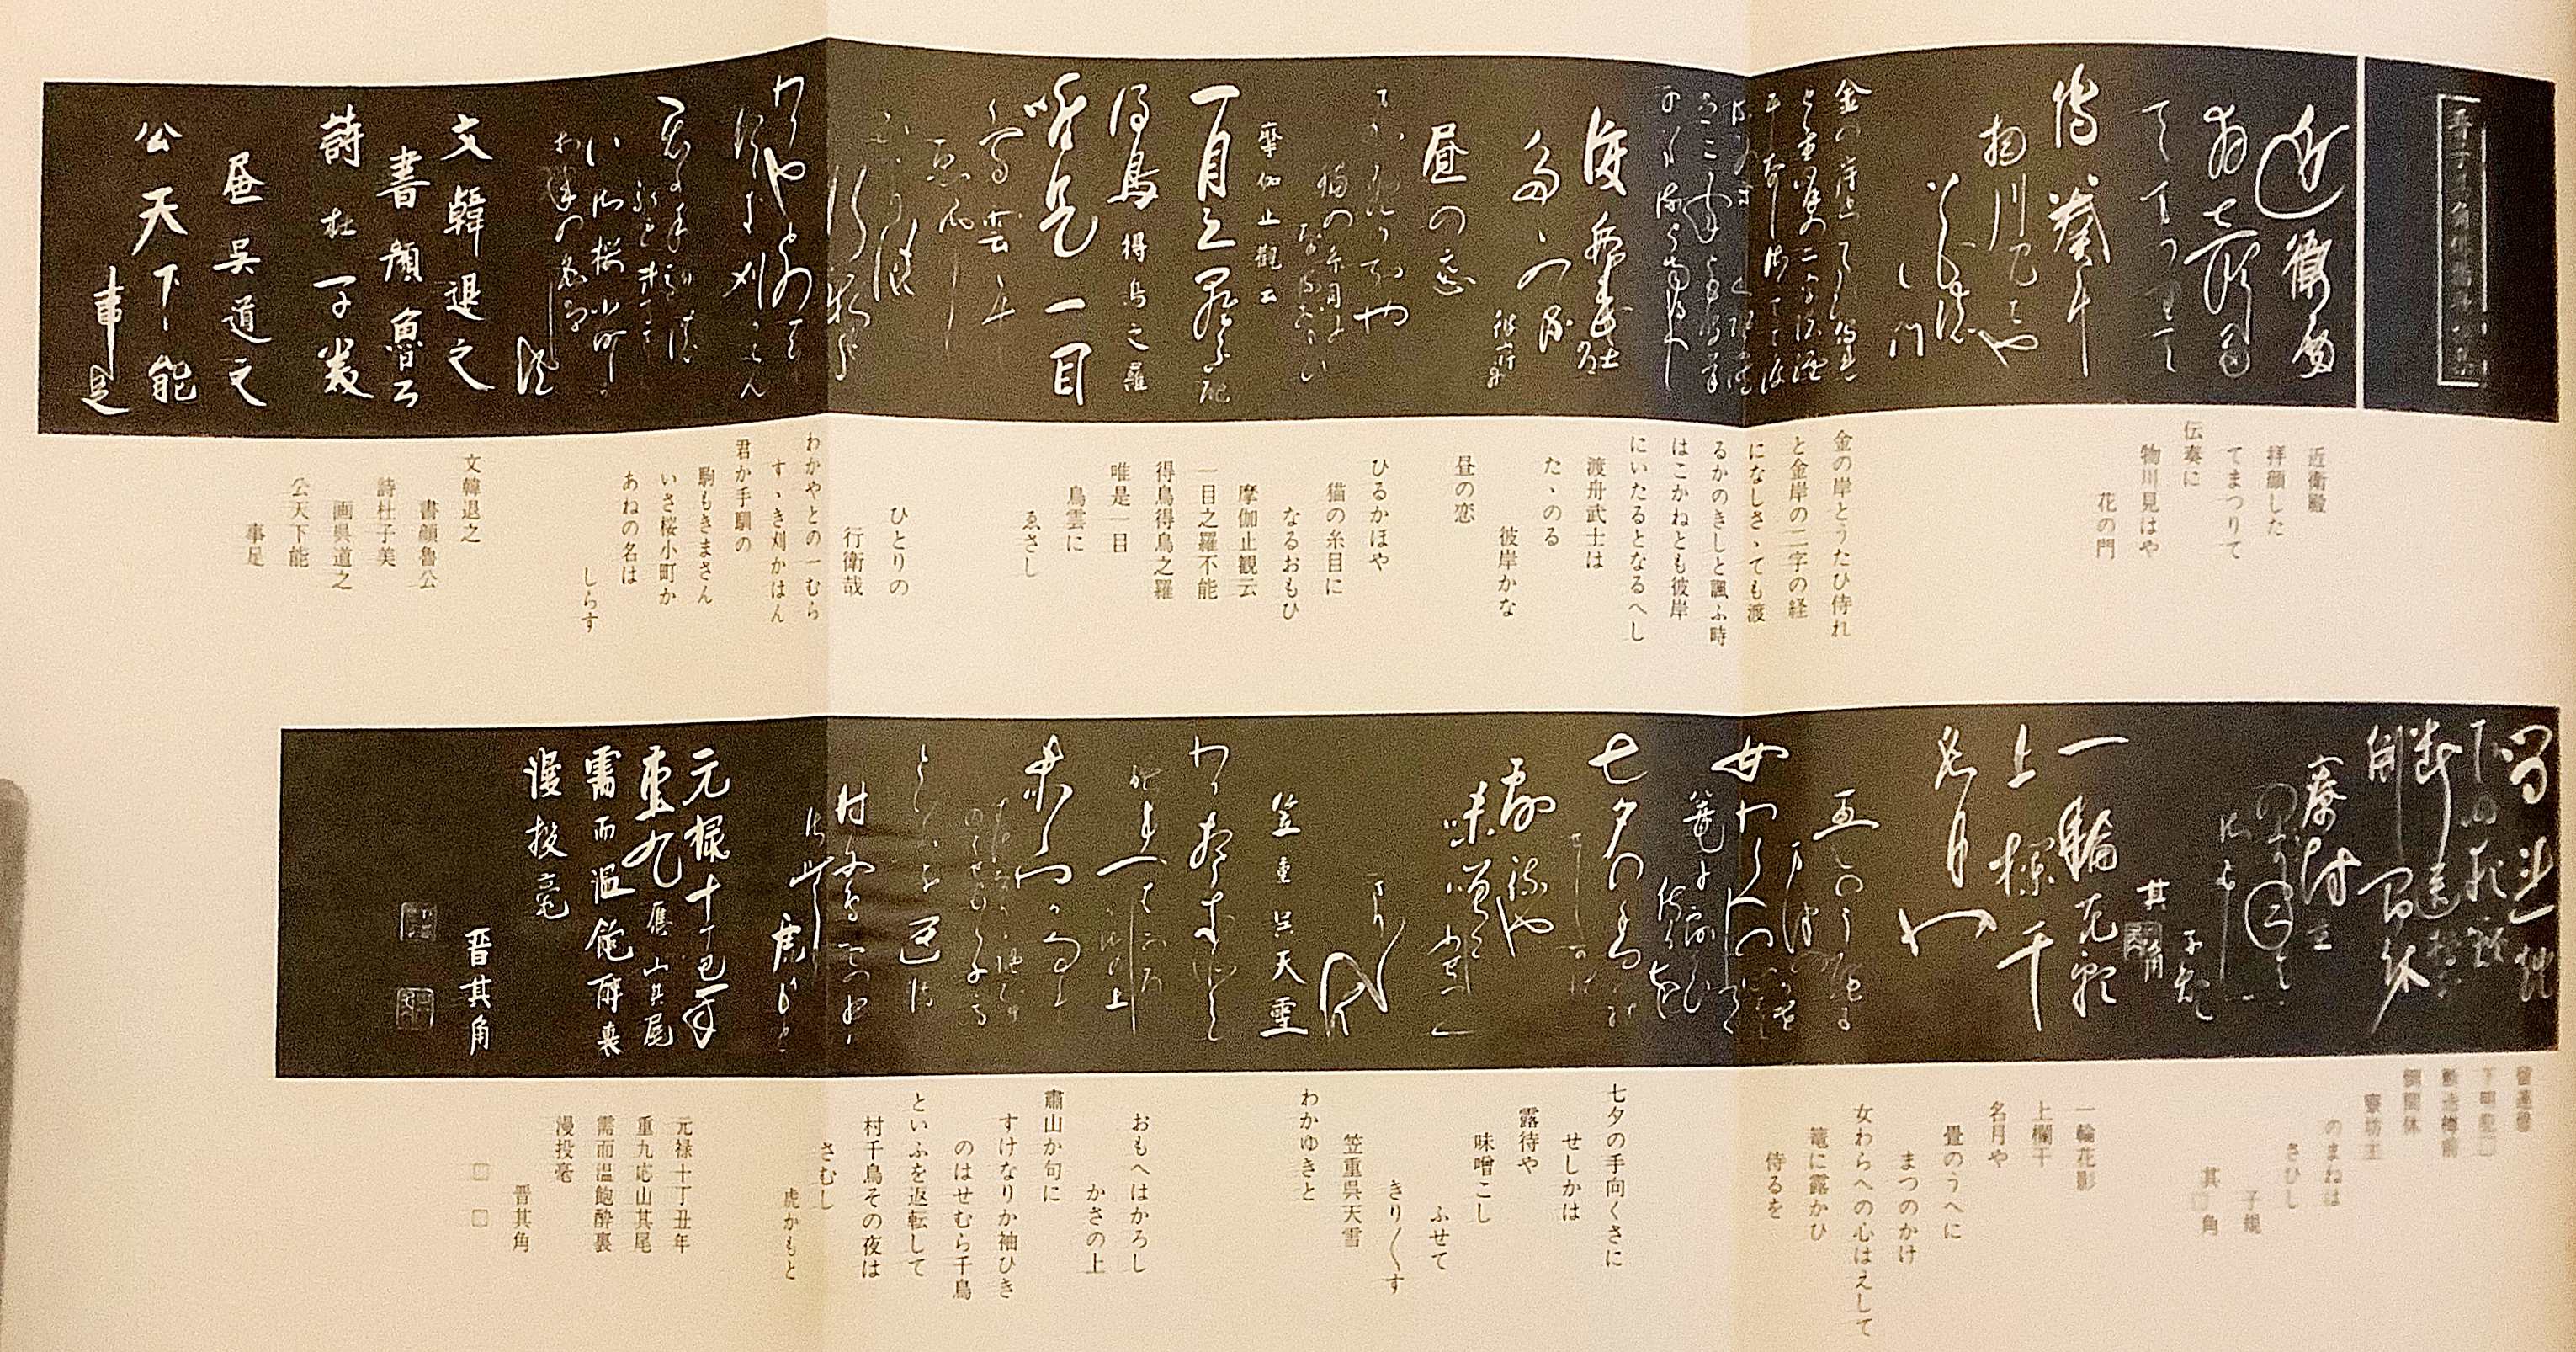 近衛殿
拝顔した
てまつりて
伝奏に
物川見はや
花の門
金の岸とうたひ侍れ
と金岸の二字の経
になしさゝても渡
るかのきしと諷ふ時
はこかねとも彼岸
にいたるとなるへし
渡舟武士は
たゝのる
彼岸かな
昼の恋
ひるかほや
猫の糸目に
なるおもひ
摩伽止観云
一目之羅不能
得鳥得鳥之羅
唯是一目
鳥雲に
ゑさし
ひとりの
行衛哉
わかやとの一むら
すゝき刈かはん
君か手馴の
駒もきまさん
いさ桜小町か
あねの名は
しらす
文韓退之
書顔魯公
詩杜子美
画呉道之
公天下能
事足
寮坊主
のまねは
さひし
子規
其□角
一輪花影
上欄干
名月や
畳のうへに
まつのかけ
女わらへの心はえして
篭に露かひ
侍るを
七夕の手向くさに
せしかは
露待や
味噌こし
ふせて
きり〱す
笠重呉天雪
わかゆきと
おもへはかろし
かさの上
肅山か句に
すけなりか袖ひき
のはせむら千鳥
といふを返転して
村千鳥その夜は
さむし
虎かもと
元禄十丁丑年
重九応山其尾
需而温飽酔裏
漫投毫
晋其角
□ □